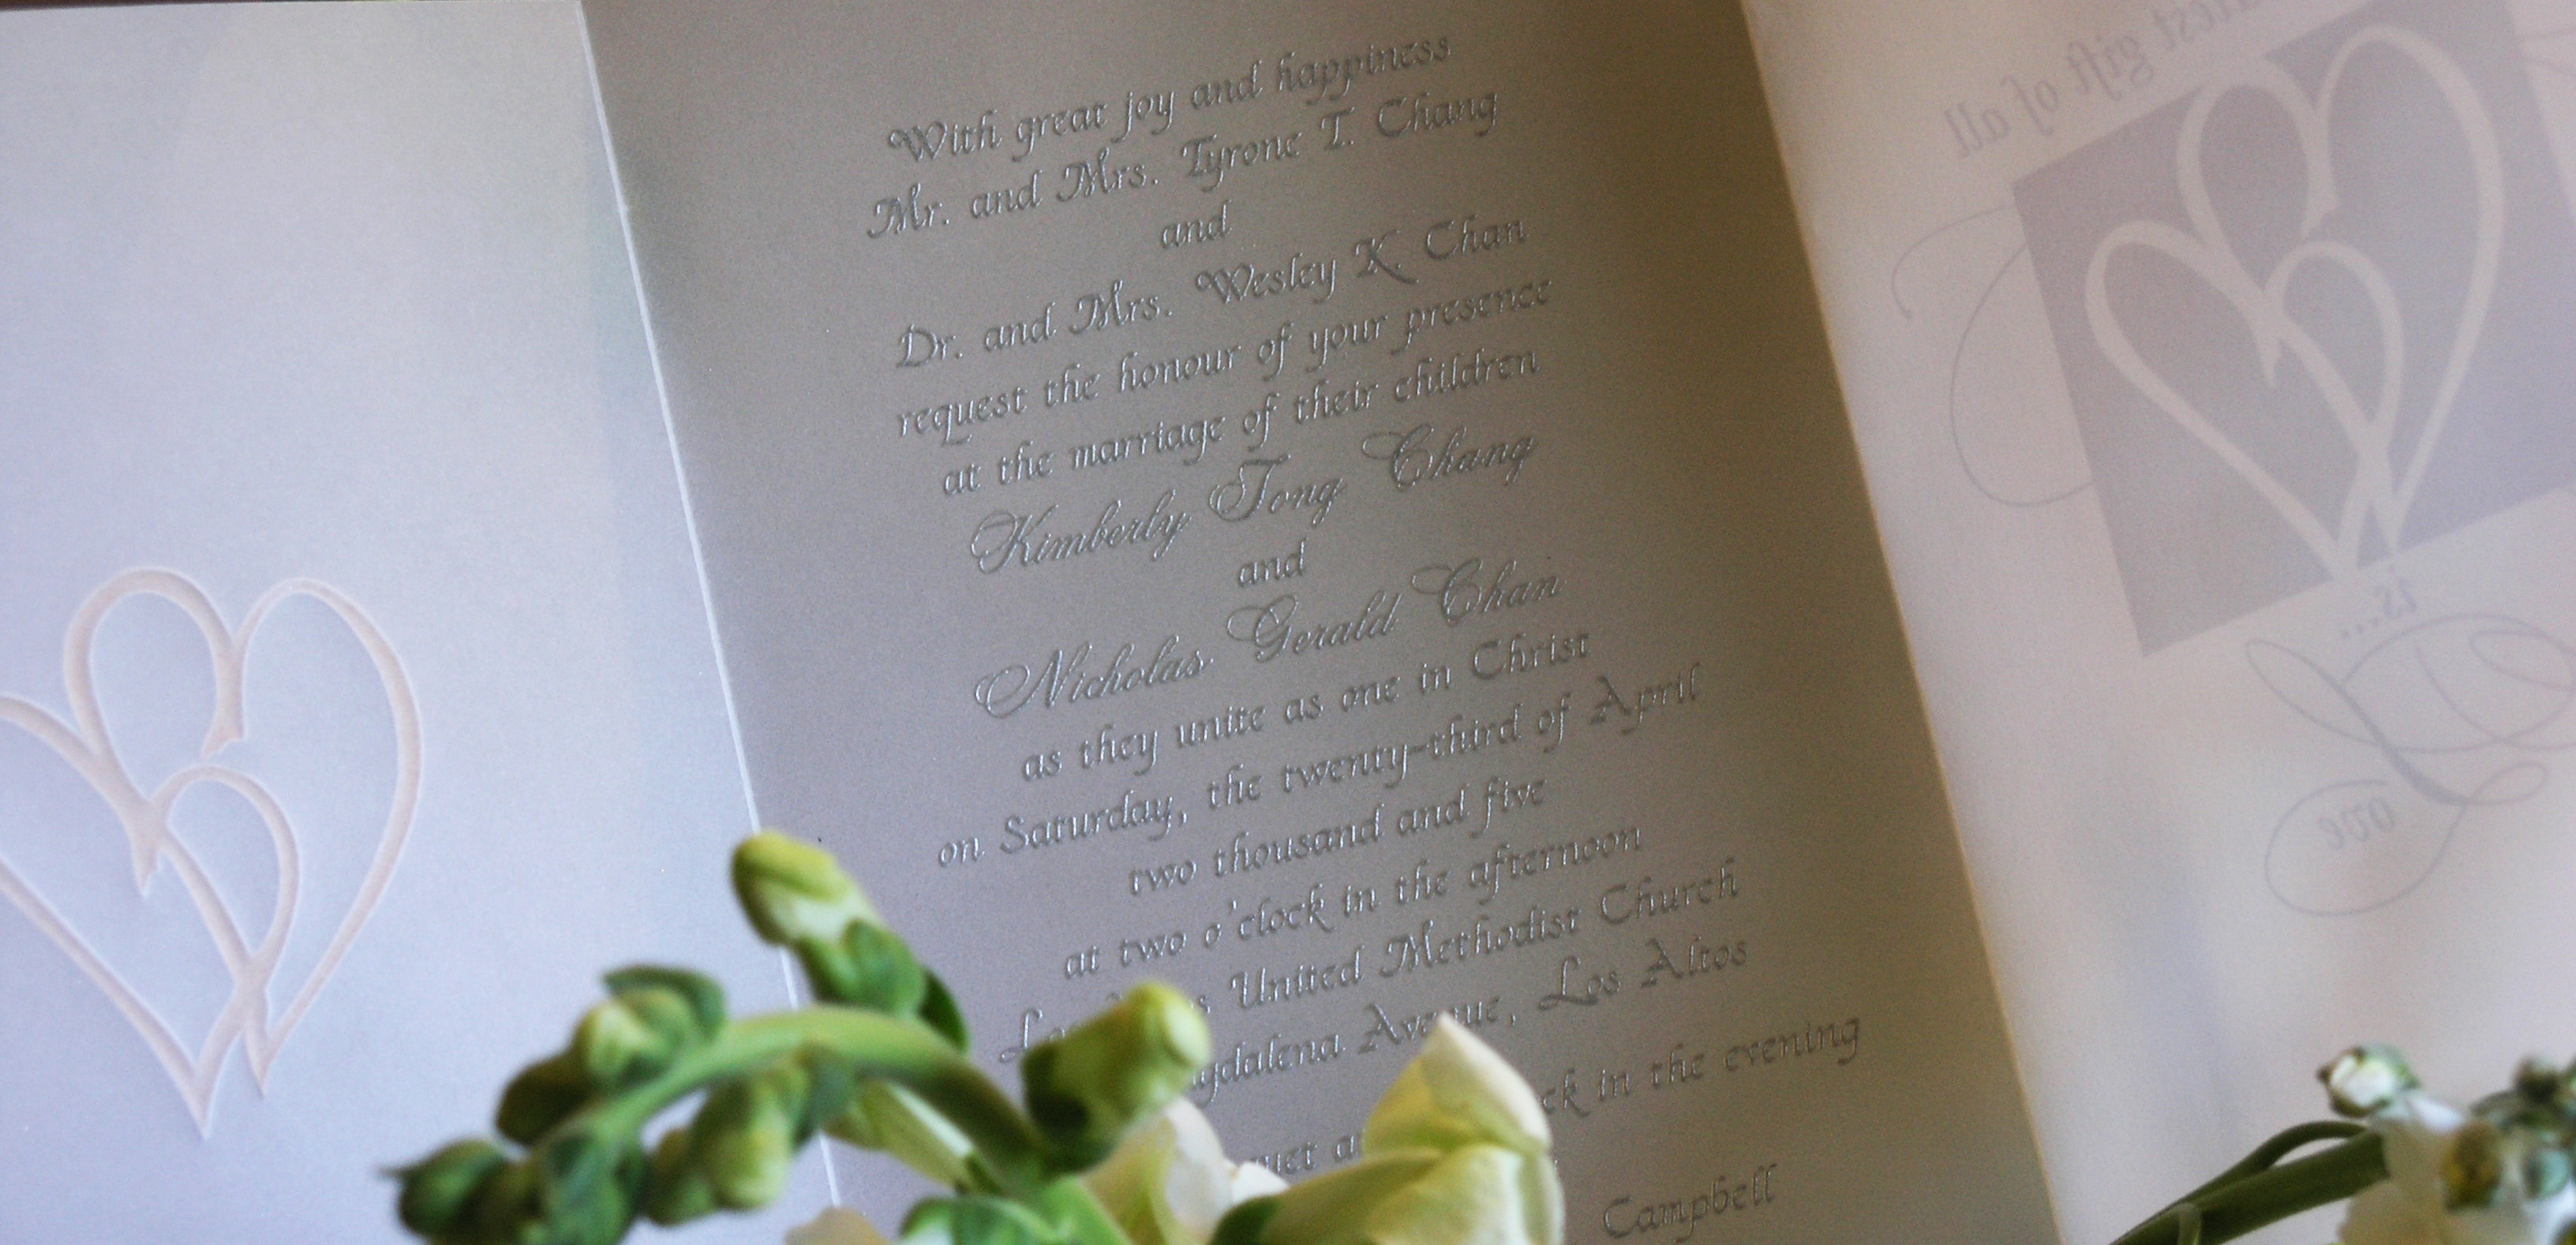 With great joy and happiness
Mr. and Mrs. Tyrone T. Chang
and
Dr. and Mrs. Wesley K. Chan
request the honour of your presence
at the marriage of their children
Kimberly Tong Chang
and
Nicholas Gerald Chan
as they unite as one in Christ
on Saturday, the twenty-third of April
two thousand and five
at two o'clock in the afternoon
United Methodist Church
Avenue, Los Altos
in the evening
Campbell
gift of all
is...
Love